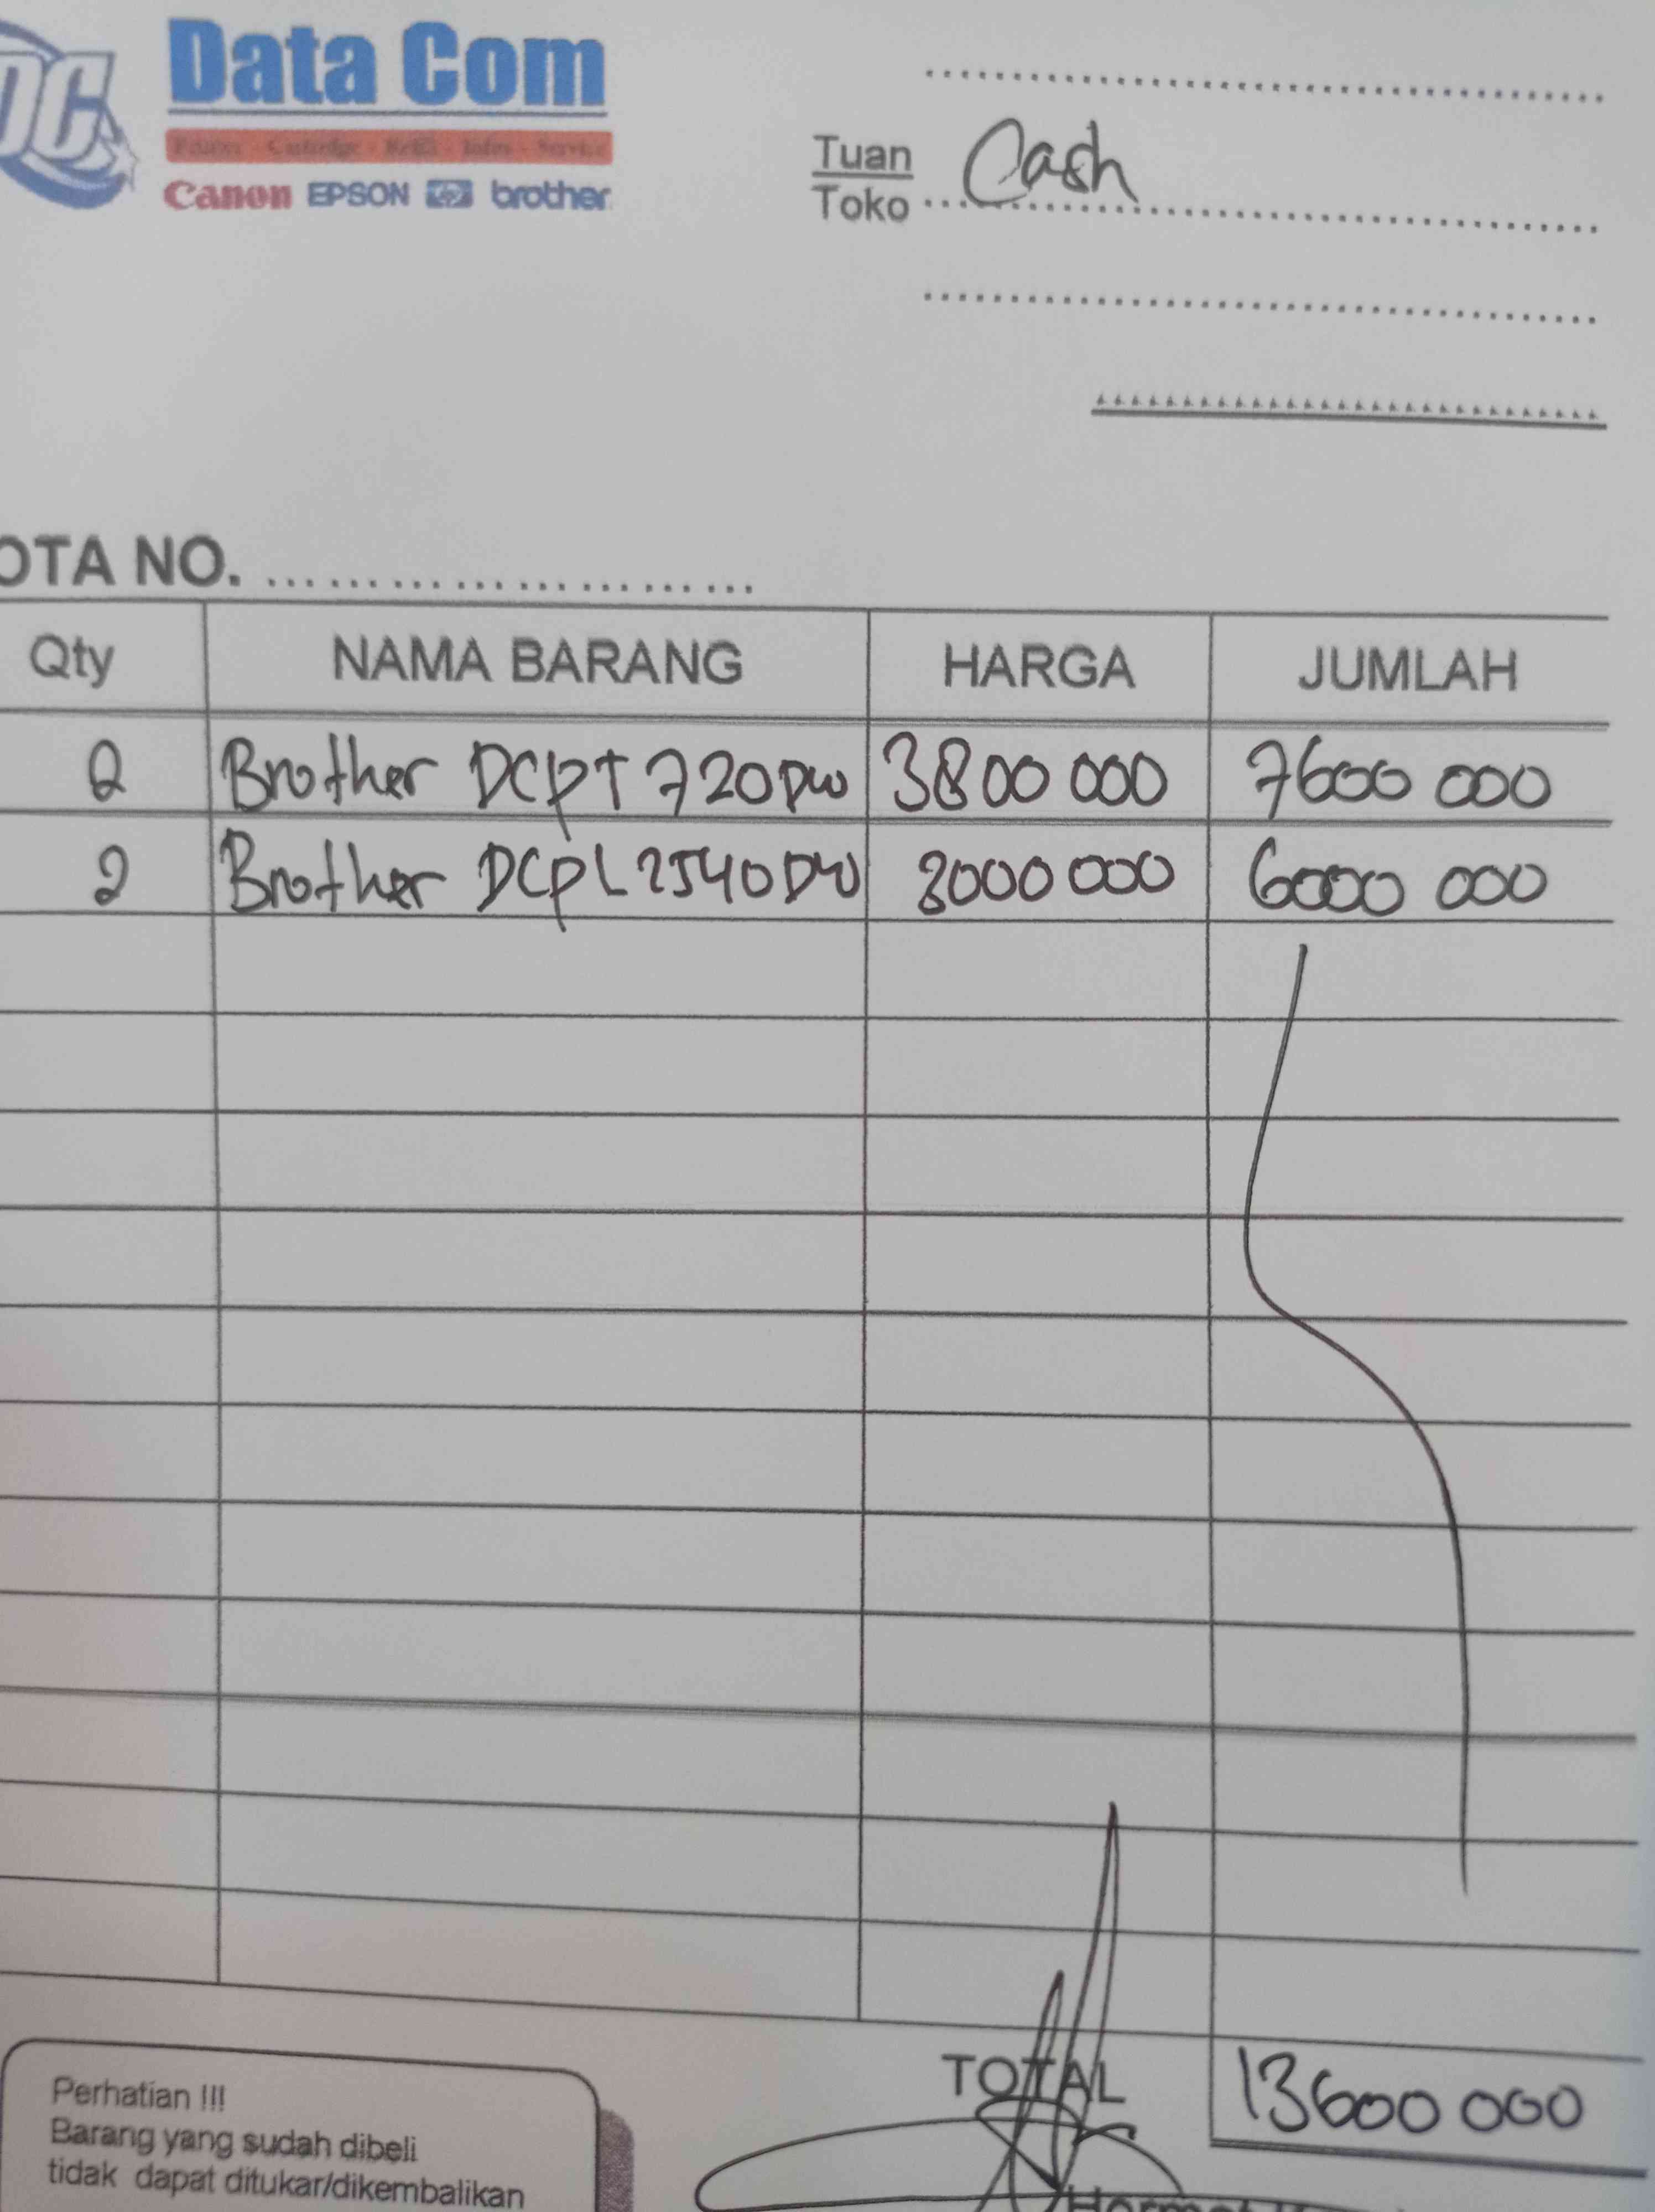 DC
Data Com
Printer - Cartridge - Refill - Infus - Service
Canon EPSON hp brother
Tuan Cash
Toko
OTA NO.
Qty NAMA BARANG HARGA JUMLAH
2 Brother DCPT 720DW 3800 000 7600 000
2 Brother DCPL2540DW 3000 000 6000 000
TOTAL 13600 000
Perhatian !!!
Barang yang sudah dibeli
tidak dapat ditukar/dikembalikan
Hormat